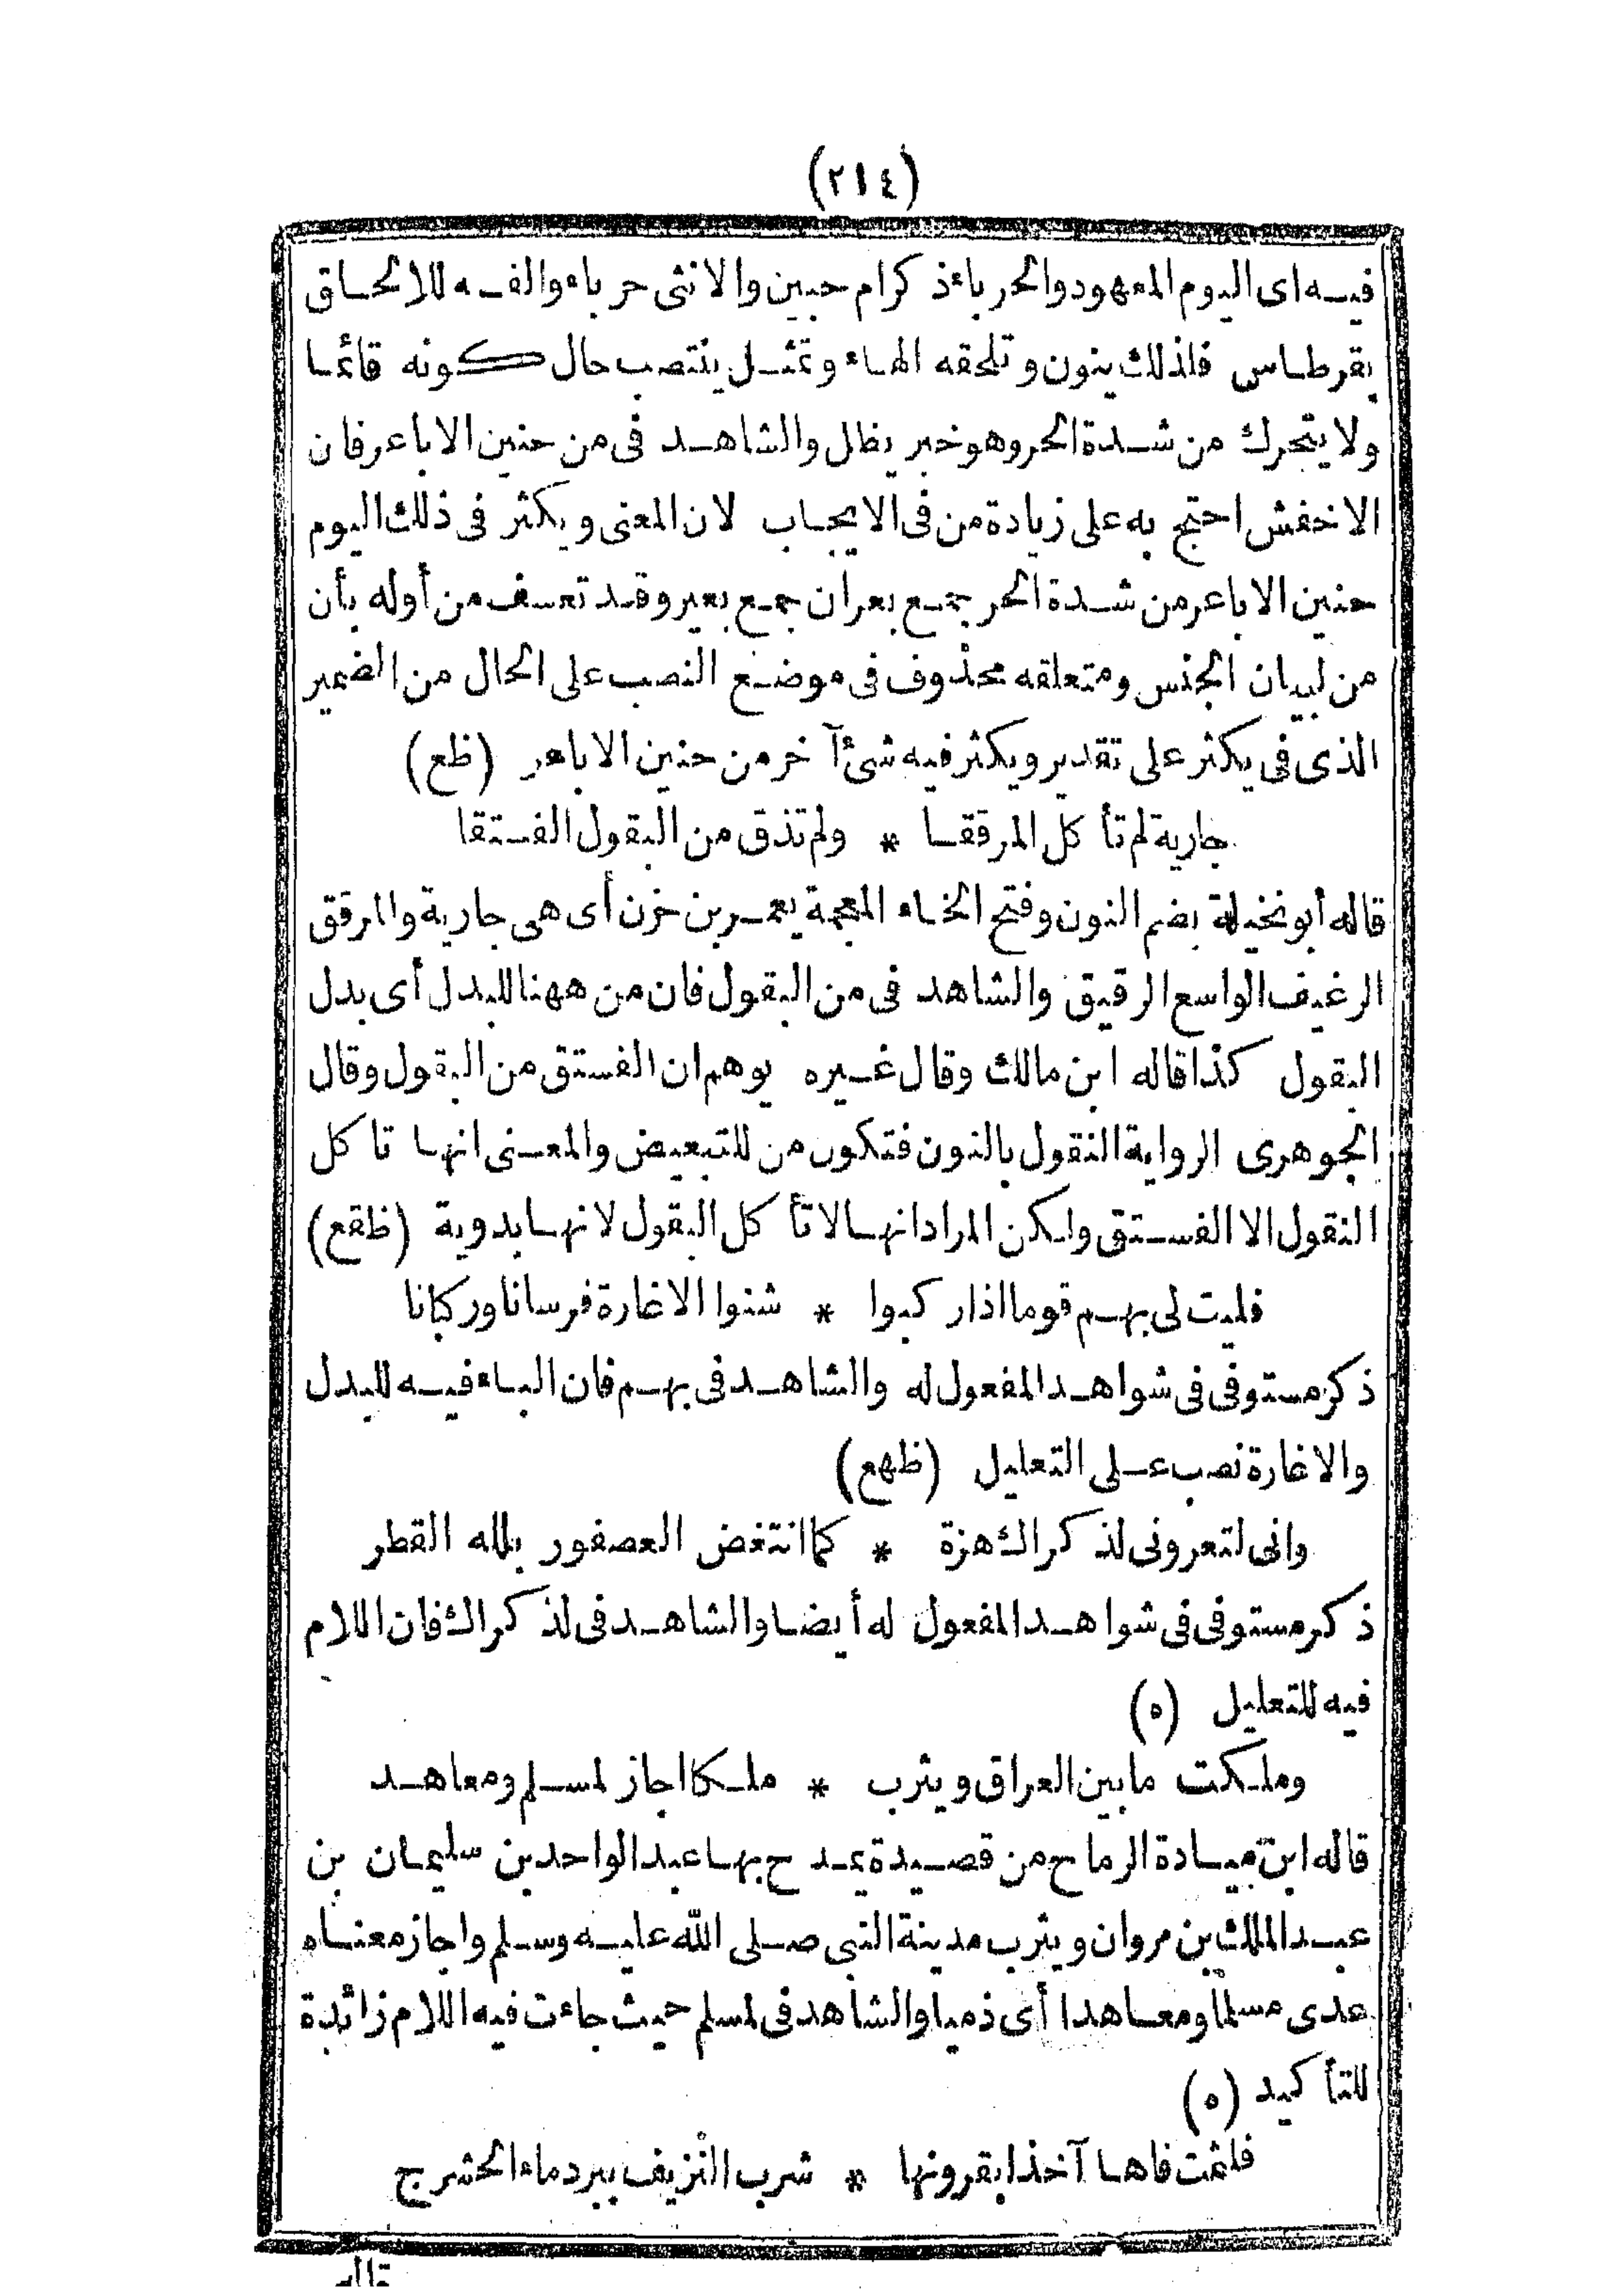 (٢١٤)
فيه اى اليوم المعهود والحرباء ذكرام حبين والانثى حرباءو الفه للالحاق
بقرطاس فلذلك ينون وتلحقه الهاء وتمثل ينتصب حال كونه قائما
ولا يتحرك من شدة الحر وهو خبر يظل والشاهد فى من حنين الاباعر فان
الاخفش احتج به على زيادة من فى الايجاب لان المعنى ويكثر فى ذلك اليوم
حنين الاباعر من شدة الحر جمع بعران جمع بعير وقد تعسف من أوله بأن
من لبيان الجنس ومتعلقه محذوف فى موضع النصب على الحال من الضمير
الذى فى يكثر على تقدير ويكثر فيه شئ آخر من حنين الاباعر (ظع)
جارية لم تأكل المرققا * ولم تذق من البقول الفستقا
قاله أبو نخيلة بضم النون وفتح الخاء المعجمة يعمر بن حزن أى هى جارية والمرقق
الرغيف الواسع الرقيق والشاهد فى من البقول فان من ههنا للبدل أى بدل
البقول كذا قاله ابن مالك وقال غيره يوهم ان الفستق من البقول وقال
الجوهرى الرواية النقول بالنون فتكون من للتبعيض والمعنى انها تاكل
النقول الا الفستق ولكن المراد انها لا تأكل البقول لانها بدوية (ظقع)
فليت لى بهم قوما اذا ركبوا * شنوا الاغارة فرسانا وركبانا
ذكر مستوفى فى شواهد المفعول له والشاهد فى بهم فان الباء فيه للبدل
والاغارة نصب على التعليل (ظهع)
وانى لتعرونى لذكراك هزة * كما انتفض العصفور بلله القطر
ذكر مستوفى فى شواهد المفعول له أيضا والشاهد فى لذكراك فان اللام
فيه للتعليل (ه)
وملكت ما بين العراق ويثرب * ملكا اجاز لمسلم ومعاهد
قاله ابن ميادة الرماح من قصيدة يمدح بها عبد الواحد بن سليمان بن
عبد الملك بن مروان ويثرب مدينة النبى صلى الله عليه وسلم واجاز معناه
عدى مسلما ومعاهدا أى ذميا والشاهد فى لمسلم حيث جاءت فيه اللام زائدة
للتأكيد (ه)
فلثمت فاها آخذا بقرونها * شرب النزيف ببرد ماء الحشرج